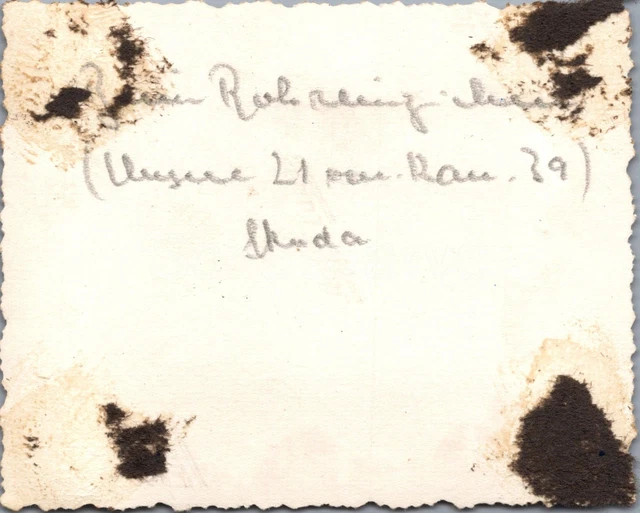 Beim Rohrreinigen
(Unsere 21 cm. Kan. 39)
Skoda